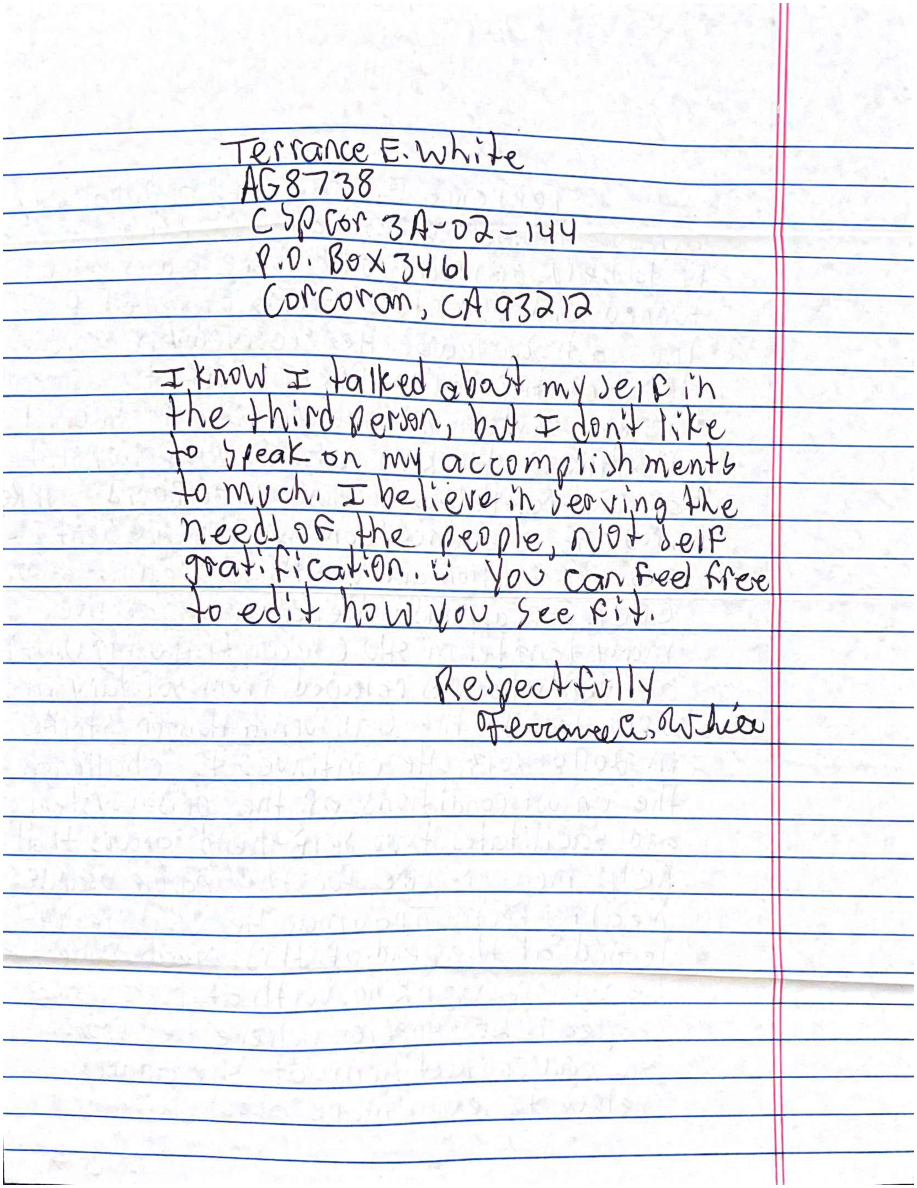 Terrance E. White
AG8738
CSP Cor 3A-02-144
P.O. Box 3461
Corcoran, CA 93212
I know I talked about myself in
the third person, but I don't like
to speak on my accomplishments
to much. I believe in serving the
needs of the people, not self
gratification. You can feel free
to edit how you see fit.
Respectfully
Terrance E. White